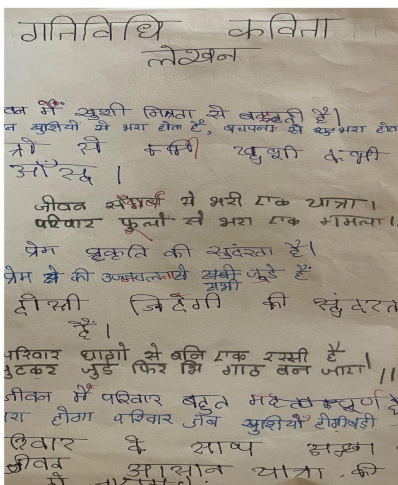 गतिविधि कविता
लेखन
वन में खुशी मित्रता से बढ़ती है।
न खुशियों से भरा होता है, बचपना से भरा होत
त्रो से कभी खुशी कभी
आँसू।
जीवन संघर्ष से भरी एक यात्रा।
परिवार फूलों से भरा एक गमला।
प्रेम प्रकृति की सुदंरता है।
प्रेम से की उज्जवलताये सभी जुड़े हैं
सभी
दोस्ती जिदँगी की सुंदरत
है।
परिवार धागो से बनि एक रस्सी है
टुटकर जुड़े फिर भि गाठ बन जाए।।
जीवन में परिवार बहुत महत्वपूर्ण है
रा होगा परिवार जब खुशियाँ होगी
रिवार के साथ
जीवन आसान यात्रा की
में